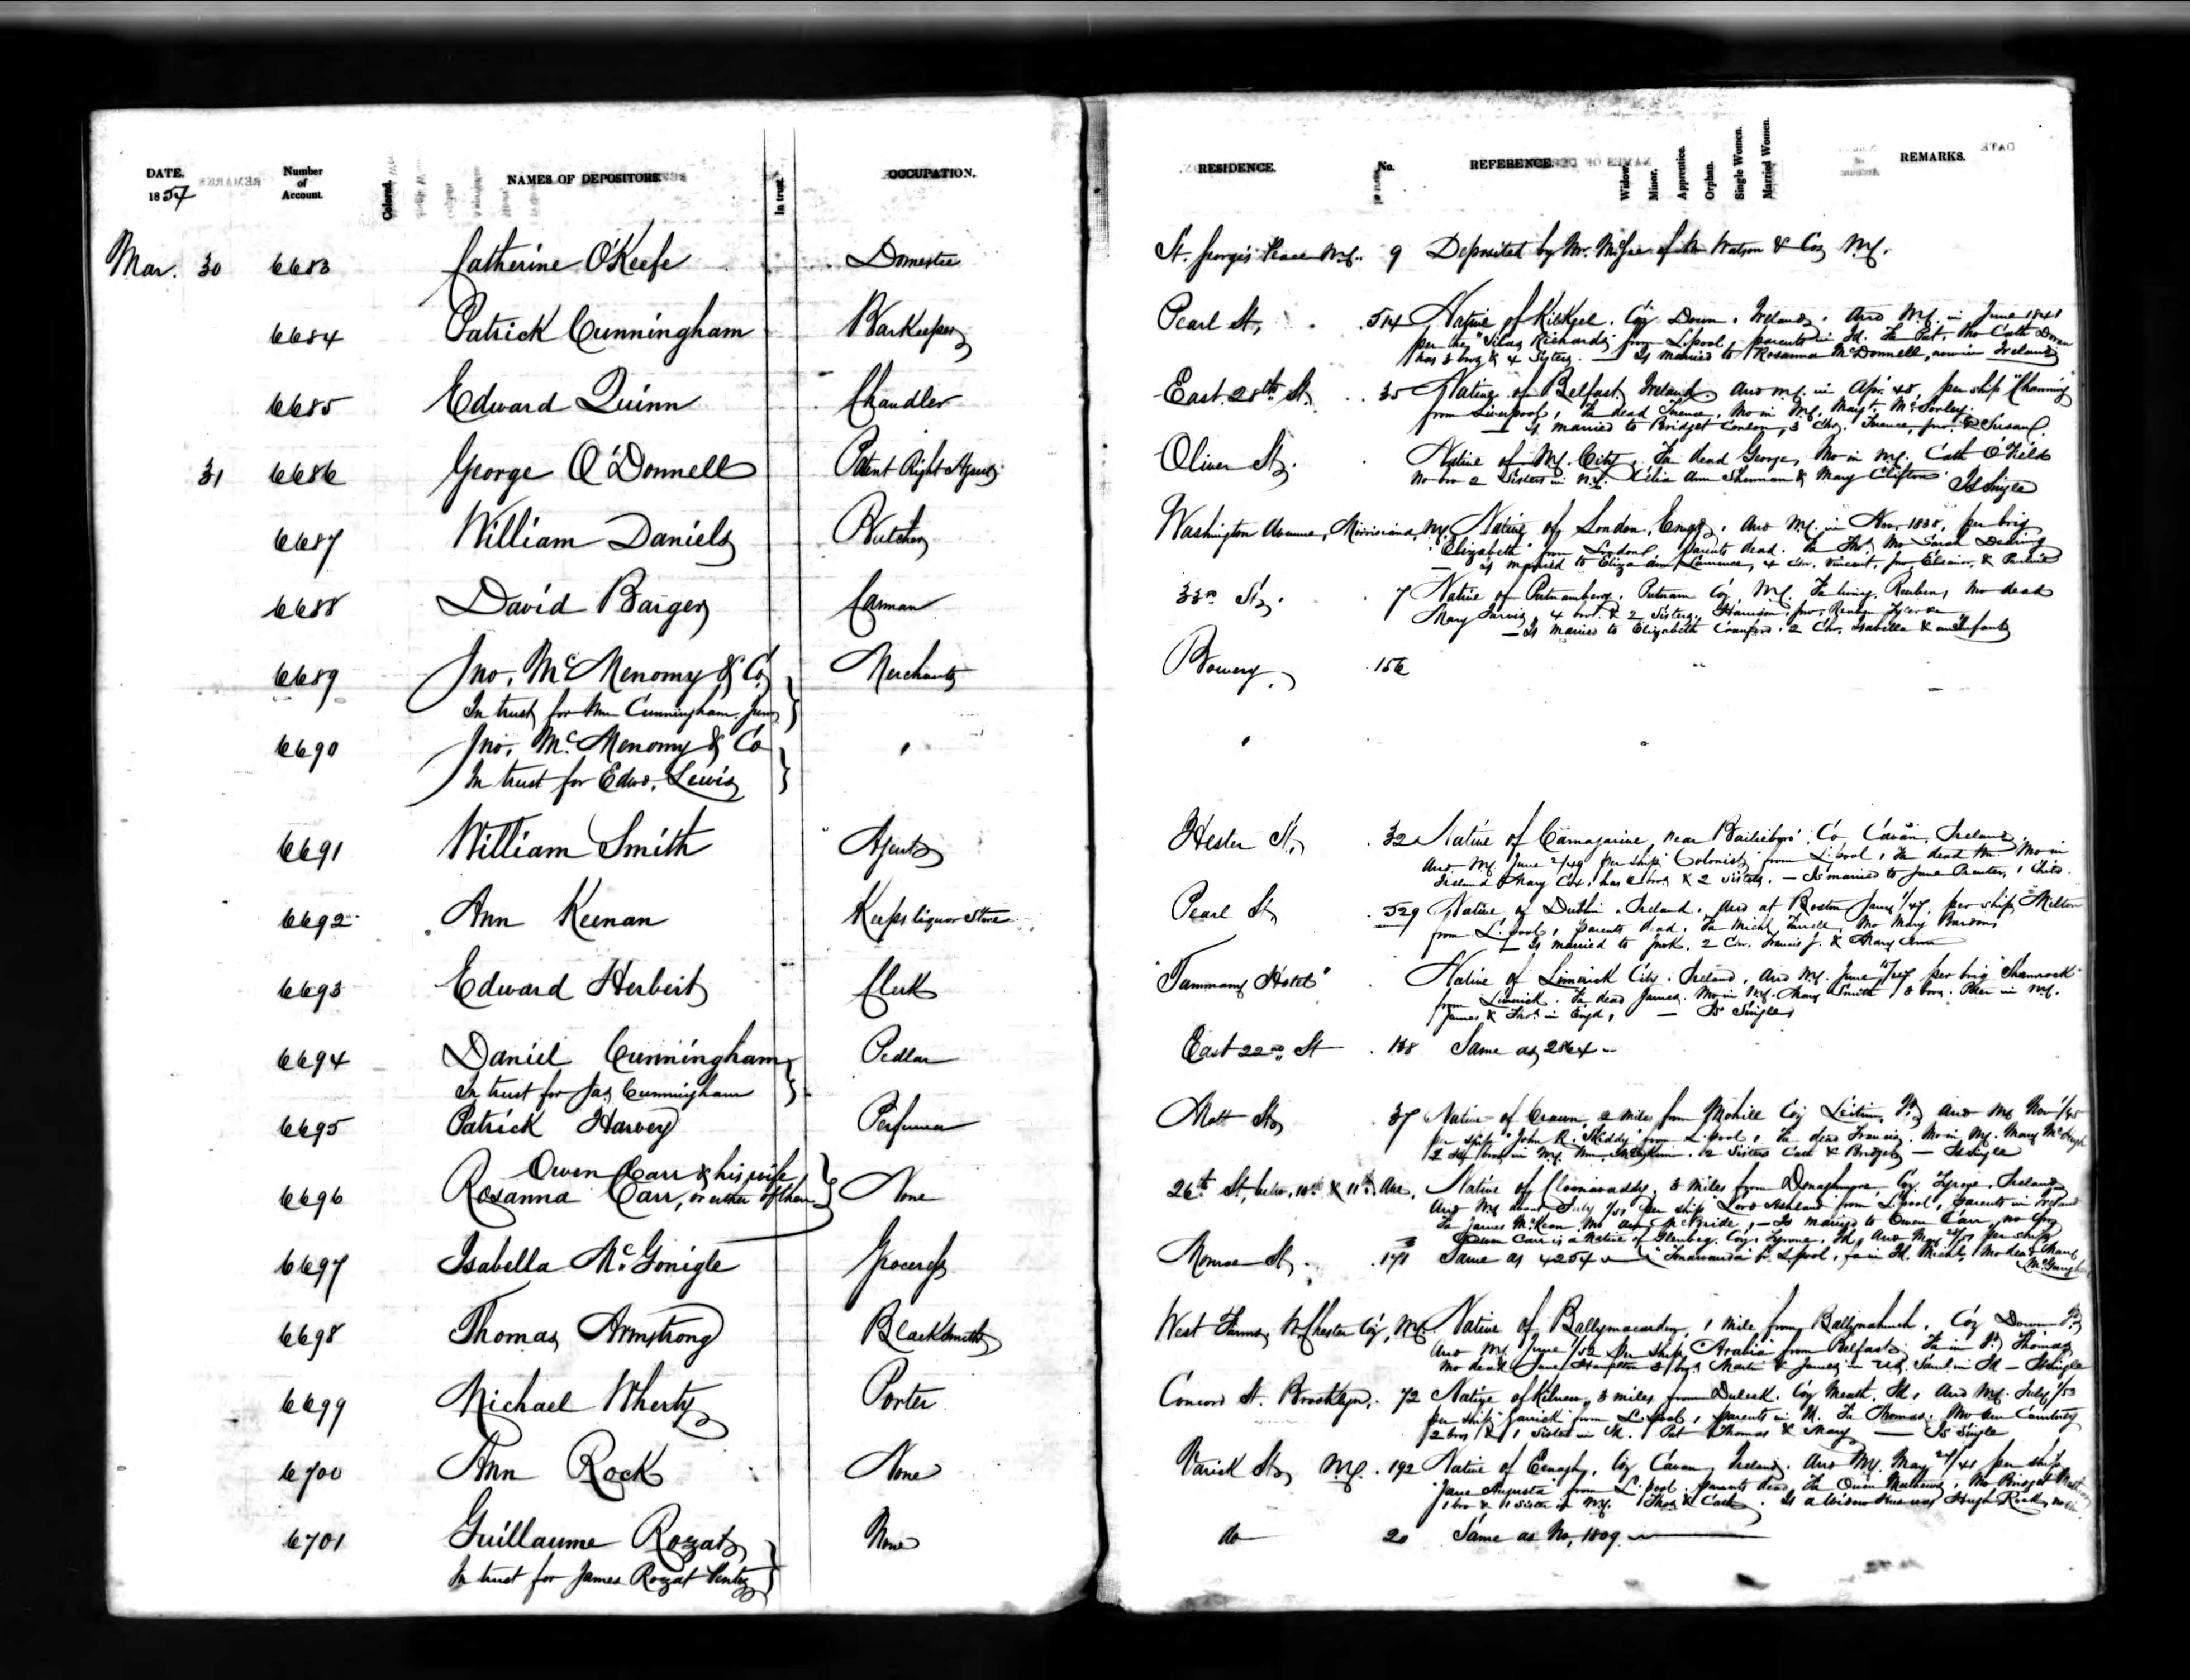 DATE. Number of Account. Colored. NAMES OF DEPOSITORS. In trust. OCCUPATION. RESIDENCE. No. REFERENCE. Widow. Minor. Apprentice. Orphan. Single Women. Married Women. REMARKS.
1854
Mar. 30 6683 Catherine O'Keefe Domestic St. George's Place N.Y. 9 Deposited by Mr. McGee of Watson & Co. N.Y.
6684 Patrick Cunningham Barkeeper Pearl St, 514 Native of Kilkeel. Coy Down, Ireland, Arrd N.Y. in June 1841
per "Silas Richards" from L.pool, parents in Id. Fa Pat, Mo Cath Doran
has 3 bros & 4 Sisters. — Is married to Rosanna McDonnell, now in Ireland
6685 Edward Quinn Chandler East 28th St. 35 Native of Belfast, Ireland. Arrd N.Y. in Apr. 48, per ship "Channing"
from Liverpool, Fa dead Terence, Mo in N.Y. Margt. McSorley.
— Is married to Bridget Conlon, 3 Chn. Terence, Jno. & Susan.
31 6686 George O'Donnell Patent Right Agent Oliver St. Native of N.Y. City. Fa dead George, Mo in N.Y. Cath O'Field
no bro 2 Sisters in N.Y. Celia Ann Shennan & Mary Clifton Is Single
6687 William Daniels Butcher Washington Avenue, Morrisiana, N.Y. Native of London, Engd. Arrd N.Y. in Nov. 1838, per brig
"Elizabeth" from London, parents dead. Fa Thos. Mo Sarah Dearing
— Is married to Eliza Ann Lawrence, 4 Chn. Vincent, Jno, Eleanor, & Pauline
6688 David Barger Carman 33rd St. 7 Native of Putnam Coy N.Y. Fa living, Reuben, Mo dead
Mary Jarvis, 4 bros. & 2 Sisters, Harrison, Jno, Reuben, Tyler
— Is married to Elizabeth Cranford. 2 Chn. Isabella & an Infant
6689 Jno. McMenomy & Co. Merchants Bowery 156
In trust for Wm Cunningham Junr
6690 Jno. McMenomy & Co
In trust for Edwd. Lewis
6691 William Smith Agent Hester St, 32 Native of near Bailieboro' Co Cavan, Ireland.
Arrd N.Y. June 2/49 per ship "Colonist" from L.pool, Fa dead Wm. Mo in
Ireland Mary Cox, has 2 bros & 2 sisters. — Is married to Jane 1 Child.
6692 Ann Keenan Keeps liquor Store Pearl St, 529 Native of Dublin, Ireland. Arrd at Boston Jany 1/47. per ship "Milton"
from L.pool, parents dead. Fa Michl Farrell, Mo Mary
— Is married to 2 Chn. Francis J. & Mary Ann
6693 Edward Herbert Clerk "Tammany Hotel" Native of Limerick City. Ireland, Arrd N.Y. June per brig "Shamrock"
from Limerick. Fa dead James. Mo in N.Y. Mary Smith, 3 bros. Peter in N.Y.
James & Thos. in Engd, — Is Single
6694 Daniel Cunningham Pedlar East 22nd St 138 Same as 2864
In trust for Jas Cunningham
6695 Patrick Harvey Perfumer Mott St. 37 Native of 2 miles from Mohill Coy Leitrim, Id. Arrd N.Y. Nov
per ship "John R. Skiddy" from L.pool, Fa dead Francis. Mo in N.Y. Mary McHugh
2 bros in N.Y. 2 Sisters Cath & Bridget — Is Single
Owen Carr & his wife
6696 Rosanna Carr, or either of them None 26th St, betw. 10th & 11th Ave, Native of 3 miles from Donaghmore, Coy Tyrone, Ireland
Arrd N.Y. about July 1/51 per ship "Lord Ashland" from L.pool, parents in Ireland
Fa James McKeon, Mo Ann McBride, — Is married to Owen Carr no
Owen Carr is a Native of Coy Tyrone, Id, Arrd per ship
6697 Isabella McGonigle Grocer Monroe St. 171 Same as 4254 "Tonawanda" fr L.pool, fa in Id. Michl, Mo dead Mary
6698 Thomas Armstrong Blacksmith West Farms, W.Chester Coy, N.Y. Native of Ballymacarn, 1 mile from Ballynahinch. Coy Down Id.
Arrd N.Y. June 1/52 per ship "Arabia" from Belfast, Fa in Id Thomas,
Mo dead Jane Hampton 3 bros Martin & James in U.S. Saml in Id — Is Single
6699 Michael Wherty Porter Concord St. Brooklyn. 72 Native of 3 miles from Duleek. Coy Meath, Id, Arrd N.Y. July 1/53
per ship "Garrick" from L.pool, parents in Id. Fa Thomas. Mo Ann Courtney
2 bros & 1 Sister in Id. Pat Thomas & Mary — Is Single
6700 Ann Rock None Varick St, N.Y. 192 Native of Coy Cavan, Ireland. Arrd N.Y. May 24/41 per ship
"Jane Augusta" from L.pool. parents dead, Fa Owen Mathews, Mo Bridget
1 bro & 1 Sister in N.Y. Thos & Cath. Is a Widow Hus was Hugh Rock, no
6701 Guillaume Rozat None do 20 Same as No, 1809
In trust for James Rozat